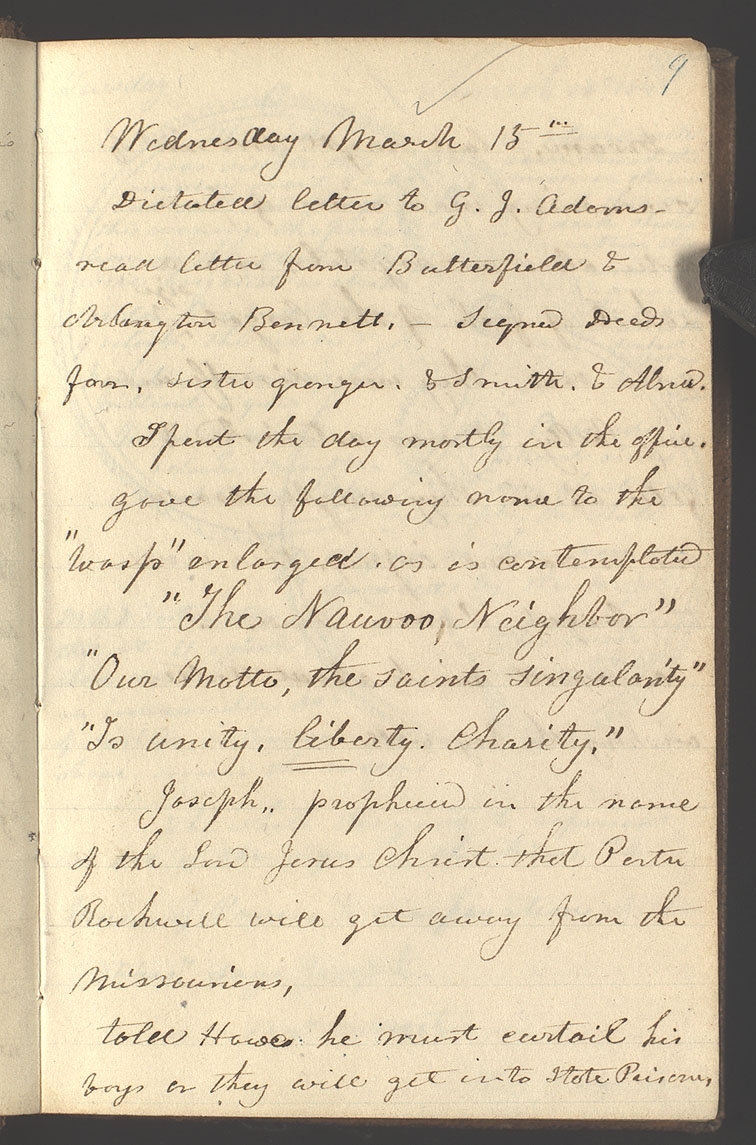 9
Wednesday March 15
Dictated letter to G. J. Adams-
read letter from Butterfield &
Arlington Bennett. – Signed Deeds
for, sister granger. & Smith. &
Spent the day mostly in the office.
gave the following name to the
"Wasp" enlarged. as is contemplated
"The Nauvoo, Neighbor"
"Our Motto, the saints singularity"
"Is unity, liberty. Charity."
Joseph,, prophecied in the name
of the Lord Jesus Christ. that Porter
Rockwell will get away from the
Missourians,
told Hawes he must curtail his
boys or they will get into State Prison,